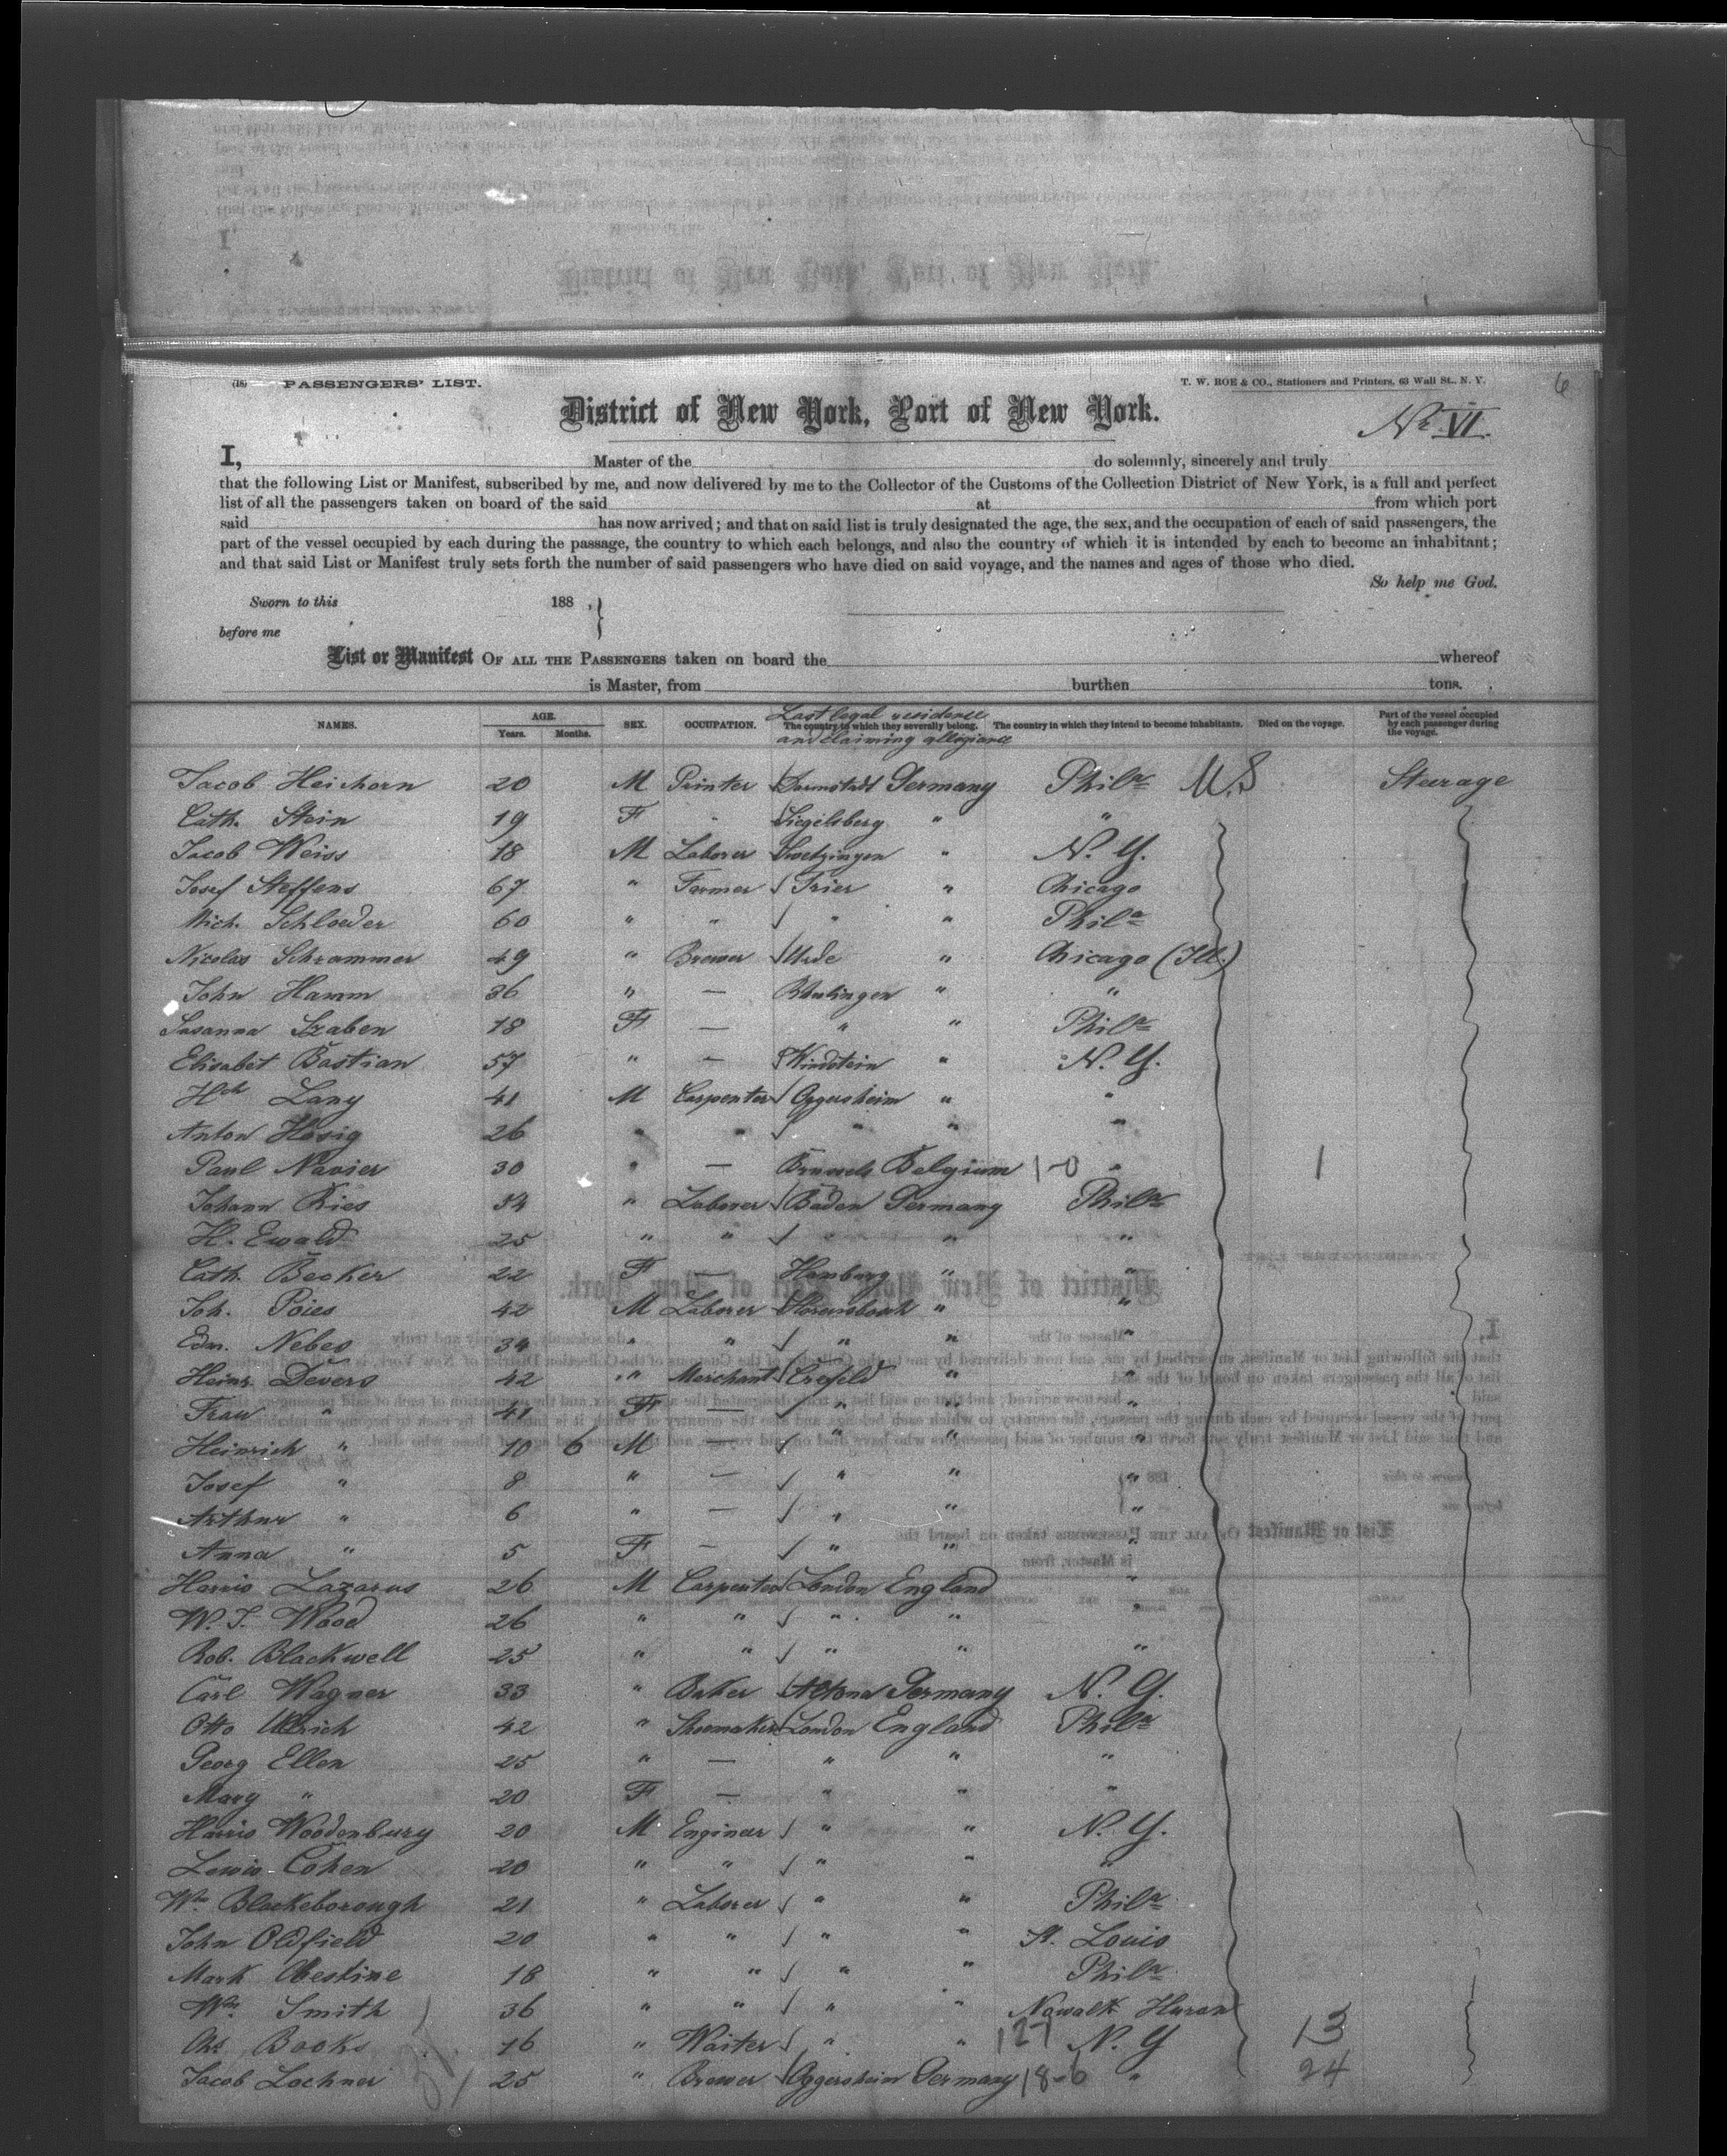 (18) PASSENGERS' LIST. T. W. ROE & CO., Stationers and Printers, 63 Wall St., N. Y. 6
District of New York, Port of New York. No VI.
I, Master of the do solemnly, sincerely and truly
that the following List or Manifest, subscribed by me, and now delivered by me to the Collector of the Customs of the Collection District of New York, is a full and perfect
list of all the passengers taken on board of the said at from which port
said has now arrived; and that on said list is truly designated the age, the sex, and the occupation of each of said passengers, the
part of the vessel occupied by each during the passage, the country to which each belongs, and also the country of which it is intended by each to become an inhabitant;
and that said List or Manifest truly sets forth the number of said passengers who have died on said voyage, and the names and ages of those who died.
So help me God.
Sworn to this 188 ,
before me
List or Manifest OF ALL THE PASSENGERS taken on board the whereof
is Master, from burthen tons.
Last legal residence
NAMES. AGE. Years. Months. SEX. OCCUPATION. The country to which they severally belong. The country in which they intend to become inhabitants. Died on the voyage. Part of the vessel occupied by each passenger during the voyage.
and claiming allegiance
Jacob Heichorn 20 M Printer Darmstadt Germany Phila U.S Steerage
Cath. Stein 19 F " Siegelsberg " "
Jacob Weiss 18 M Laborer Swetzingen " N. Y.
Josef Steffens 67 " Farmer Trier " Chicago
Mich. Schloeder 60 " " " " Phila
Nicolas Schrammer 49 " Brewer " Chicago (Ill.)
John Hamm 36 " — " "
Susanna 18 F — " " Phila
Elisabet Bastian 57 " — " N. Y.
Hch Lany 41 M Carpenter Oggersheim " "
Anton Hosig 26 " " " " "
Paul Navier 30 " — Brussels Belgium 1-0 " 1
Johann Ries 34 " Laborer Baden Germany Phila
H. Ewald 25 " " " " "
Cath. Becker 22 F — Hamburg " "
Joh. Poies 42 M Laborer " "
Edm. Nebes 34 " " " " "
Heinr. Devers 42 " Merchant Crefeld " "
Frau " 41 F — " " "
Heinrich " 10 6 M — " " "
Josef " 8 " — " " "
Arthur " 6 " — " " "
Anna " 5 F — " " "
Harris Lazarus 26 M Carpenter London England "
W. J. Wood 26 " " " " "
Rob. Blackwell 25 " " " " "
Carl Wagner 33 " Baker Altona Germany N. Y.
Otto Ullrich 42 " Shoemaker London England Phila
Georg Ellen 25 " — " " "
Mary " 20 F — " " "
Harris Woodenbury 20 M Engineer " " N. Y.
Lewis Cohen 20 " " " " "
Wm Blackeborough 21 " Laborer " " Phila
John Oldfield 20 " " " " St. Louis
Mark Obestine 18 " " " " Phila
Wm. Smith 36 " " " " Nowalk Huron
Books 16 " Waiter " " 127 N. Y 13
Jacob Lochner 25 " Brewer Oggersheim Germany 18-6 " 24